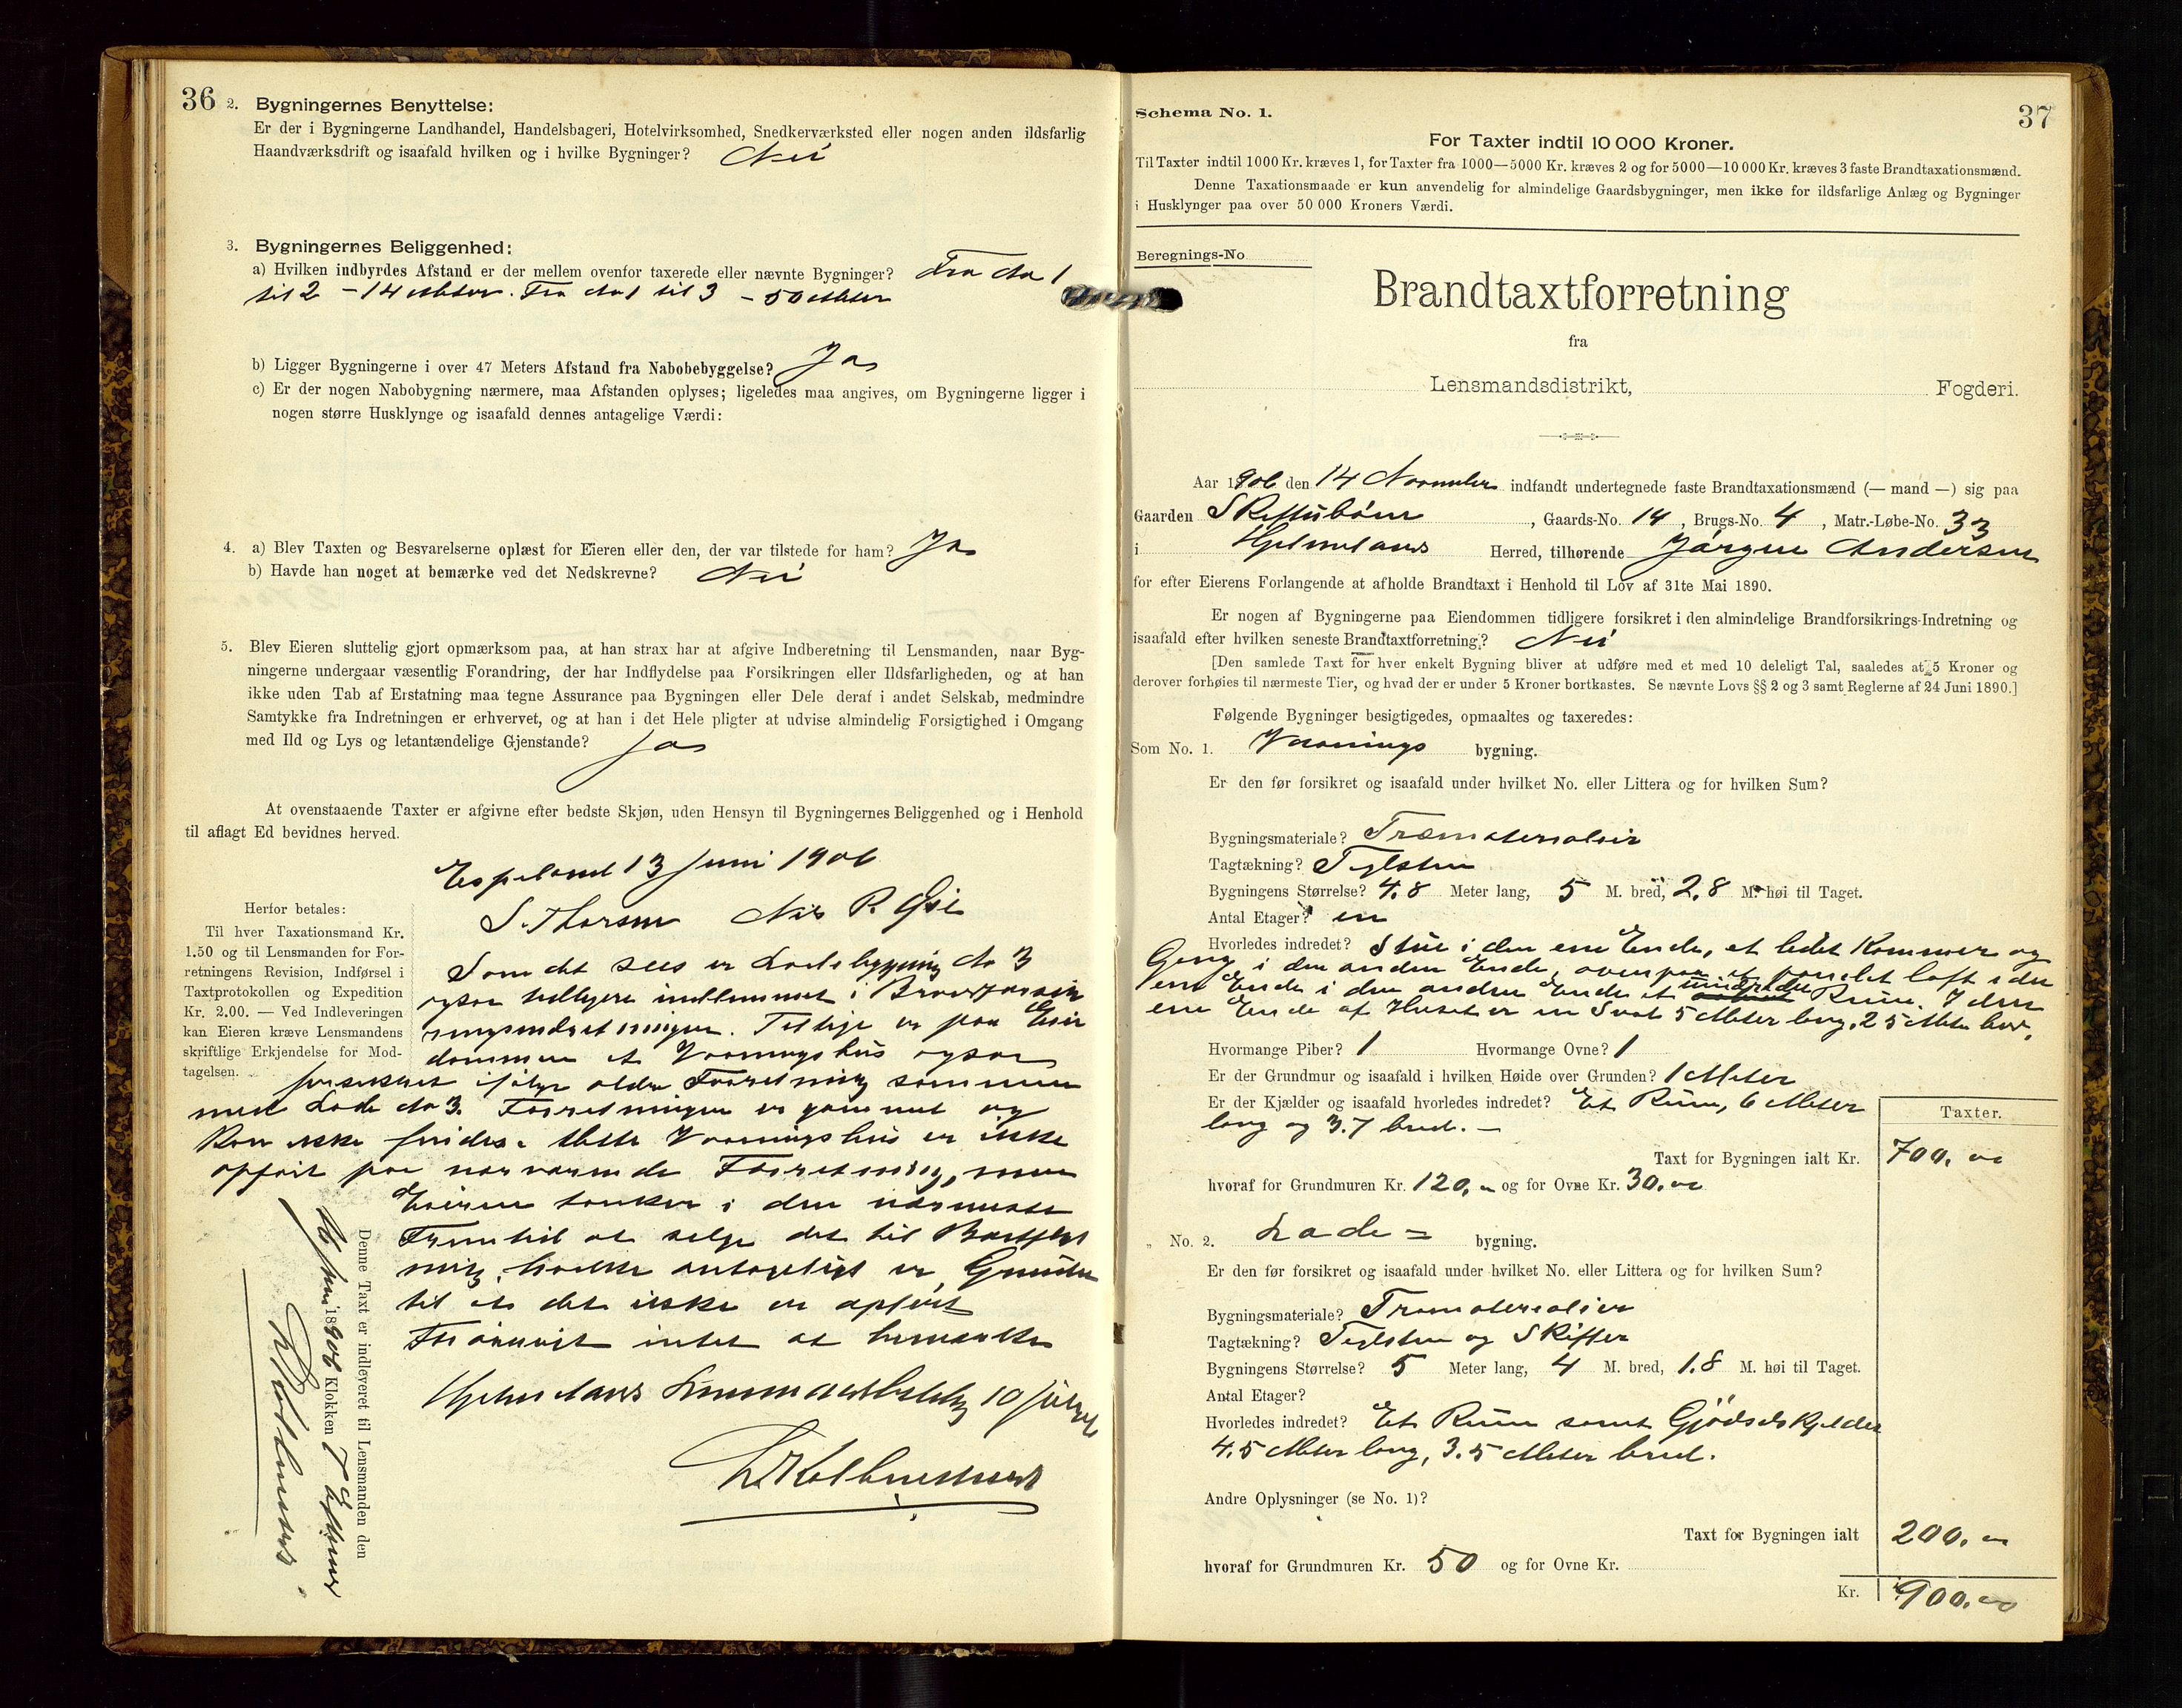 36
2. Bygningernes Benyttelse:
Er der i Bygningerne Landhandel, Handelsbageri, Hotelvirksomhed, Snedkerværksted eller nogen anden ildsfarlig
Haandværksdrift og isaafald hvilken og i hvilke Bygninger? Nei
3. Bygningernes Beliggenhed:
a) Hvilken indbyrdes Afstand er der mellem ovenfor taxerede eller nævnte Bygninger? Fra No 1
til 2 - 14 Meter. Fra No 1 til 3 - 50 Meter
b) Ligger Bygningerne i over 47 Meters Afstand fra Nabobebyggelse? Ja
c) Er der nogen Nabobygning nærmere, maa Afstanden oplyses; ligeledes maa angives, om Bygningerne ligger i
nogen større Husklynge og isaafald dennes antagelige Værdi:
4. a) Blev Taxten og Besvarelserne oplæst for Eieren eller den, der var tilstede for ham? Ja
b) Havde han noget at bemærke ved det Nedskrevne? Nei
5. Blev Eieren sluttelig gjort opmærksom paa, at han strax har at afgive Indberetning til Lensmanden, naar Byg-
ningerne undergaar væsentlig Forandring, der har Indflydelse paa Forsikringen eller Ildsfarligheden, og at han
ikke uden Tab af Erstatning maa tegne Assurance paa Bygningen eller Dele deraf i andet Selskab, medmindre
Samtykke fra Indretningen er erhvervet, og at han i det Hele pligter at udvise almindelig Forsigtighed i Omgang
med Ild og Lys og letantændelige Gjenstande? Ja
At ovenstaaende Taxter er afgivne efter bedste Skjøn, uden Hensyn til Bygningernes Beliggenhed og i Henhold
til aflagt Ed bevidnes herved.
Espeland 13 Juni 1906
S. Thorsen Nils P.
Herfor betales:
Til hver Taxationsmand Kr.
1.50 og til Lensmanden for For-
retningens Revision, Indførsel i
Taxtprotokollen og Expedition
Kr. 2.00. — Ved Indleveringen
kan Eieren kræve Lensmandens
skriftlige Erkjendelse for Mod-
tagelsen.
Som det sees er Ladebygning No 3
ogsaa tidligere indlemmet i Brandforsik
ringsindretningen. Tillige er paa Eien
dommen et Vaaningshus ogsaa
forsikret ifølge ældre Forretning sammen
med Lade No 3. Forretningen er gammel og
kan ikke findes. Dette Vaaningshus er ikke
opført paa nærværende Forretning, men
Eieren tænker i den nærmeste
Fremtid at sælge det til Bortflyt
ning, hvilket antageligt er Grunden
til at det ikke er opført
Forøvrigt intet at bemærke
Hjelmelands Lensmandsbestilling 10 Juli 1906
Denne Taxt er indleveret til Lensmanden den
Juni 1906 Klokken 7 Efterm
37
Schema No. 1.
For Taxter indtil 10 000 Kroner.
Til Taxter indtil 1000 Kr. kræves 1, for Taxter fra 1000—5000 Kr. kræves 2 og for 5000—10 000 Kr. kræves 3 faste Brandtaxationsmænd.
Denne Taxationsmaade er kun anvendelig for almindelige Gaardsbygninger, men ikke for ildsfarlige Anlæg og Bygninger
i Husklynger paa over 50 000 Kroners Værdi.
Beregnings-No
Brandtaxtforretning
fra
Lensmandsdistrikt, Fogderi.
Aar 1906 den 14 November indfandt undertegnede faste Brandtaxationsmænd (— mand —) sig paa
Gaarden Skiftubøen, Gaards-No. 14, Brugs-No. 4, Matr.-Løbe-No. 33
i Hjelmelands Herred, tilhørende Jørgen Andersen
for efter Eierens Forlangende at afholde Brandtaxt i Henhold til Lov af 31te Mai 1890.
Er nogen af Bygningerne paa Eiendommen tidligere forsikret i den almindelige Brandforsikrings-Indretning og
isaafald efter hvilken seneste Brandtaxtforretning? Nei
[Den samlede Taxt for hver enkelt Bygning bliver at udføre med et med 10 deleligt Tal, saaledes at 5 Kroner og
derover forhøies til nærmeste Tier, og hvad der er under 5 Kroner bortkastes. Se nævnte Lovs §§ 2 og 3 samt Reglerne af 24 Juni 1890.]
Følgende Bygninger besigtigedes, opmaaltes og taxeredes:
Som No. 1. Vaanings bygning.
Er den før forsikret og isaafald under hvilket No. eller Littera og for hvilken Sum?
Bygningsmateriale? Træmaterialier
Tagtækning? Teglsten
Bygningens Størrelse? 4.8 Meter lang, 5 M. bred, 2.8 M. høi til Taget.
Antal Etager? en
Hvorledes indredet? Stue i den ene Ende, et lidet Kammer og
Gang i den anden Ende, ovenpaa et panelet loft i den
ene Ende i den anden Ende et uindredet Rum. I den
ene Ende af Huset er en Sval 5 Meter lang, 2 5 Meter bred.
Hvormange Piber? 1 Hvormange Ovne? 1
Er der Grundmur og isaafald i hvilken Høide over Grunden? 1 Meter
Er der Kjælder og isaafald hvorledes indredet? Et Rum, 6 Meter
lang og 3.7 bred. —
Taxter.
Taxt for Bygningen ialt Kr. 700.00
hvoraf for Grundmuren Kr. 120.00 og for Ovne Kr. 30.00
„ No. 2. Lade= bygning.
Er den før forsikret og isaafald under hvilket No. eller Littera og for hvilken Sum?
Bygningsmateriale? Træmaterialier
Tagtækning? Teglsten og Skiffer
Bygningens Størrelse? 5 Meter lang, 4 M. bred, 1.8 M. høi til Taget.
Antal Etager?
Hvorledes indredet? Et Rum samt Gjødselskjelder
4.5 Meter lang, 3.5 Meter bred.
Andre Oplysninger (se No. 1)?
Taxt for Bygningen ialt 200.00
hvoraf for Grundmuren Kr. 50 og for Ovne Kr.
Kr. 900.00